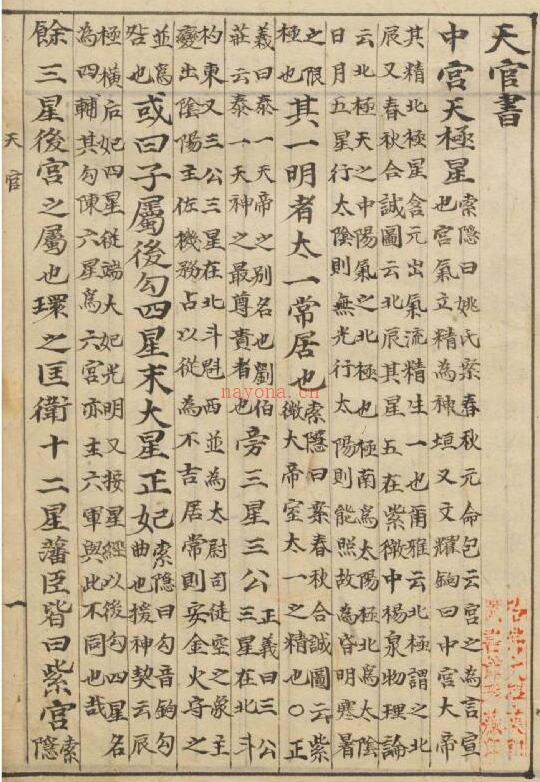 天官書
中宮天極星
索隱曰姚氏案春秋元命包云宮之為言宣
也宮氣立精為神垣又文耀鉤曰中宮大帝
其精北極星含元出氣流精生一也爾雅云北極謂之北
辰又春秋合誠圖云北辰其星五在紫微中楊泉物理論
云北極天之中陽氣之北極也極南為太陽極北為太陰
日月五星行太陰則無光行太陽則能照故為昏明寒暑
之限
極也
其一明者太一常居也
索隱曰案春秋合誠圖云紫
微大帝室太一之精也○正
義曰泰一天帝之别名也劉伯
莊云泰一天神之最尊貴者也
旁三星三公
正義曰三公
三星在北斗
杓東又三公三星在北斗魁西並為太尉司徒空之象主
變出陰陽主佐機務占以從為不吉居常則安金火守之
並為
咎也
或曰子屬後勾四星末大星正妃
索隱曰勾音鉤勾
曲也援神契云辰
極橫后妃四星從端大妃光明又接星經以後勾四星名
為四輔其勾陳六星為六宮亦主六軍與此不同也哉
餘三星後宮之屬也環之匡衛十二星藩臣皆曰紫宮
索
隱
天官
一
nayona.cn